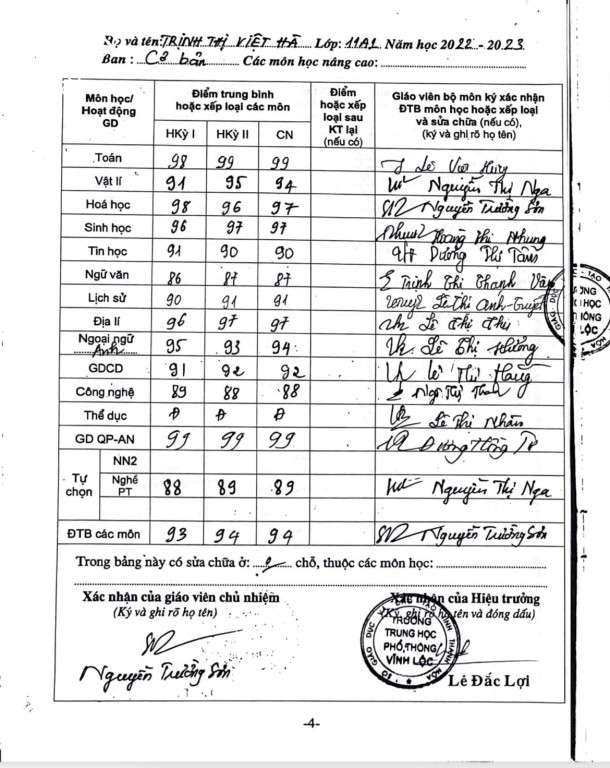 Họ và tên: TRỊNH THỊ VIỆT HÀ Lớp: 11A1 Năm học 2022 - 2023
Ban : Cơ bản Các môn học nâng cao:
Môn học/ Hoạt động GD
Điểm trung bình hoặc xếp loại các môn
Điểm hoặc xếp loại sau KT lại (nếu có)
Giáo viên bộ môn ký xác nhận ĐTB môn học hoặc xếp loại và sửa chữa (nếu có), (ký và ghi rõ họ tên)
HKỳ I HKỳ II CN
Toán 98 99 99 Lê Văn
Vật lí 91 95 94 Nguyễn Thị Nga
Hoá học 98 96 97 Nguyễn Trường Sơn
Sinh học 96 97 97 Hoàng Thị Nhung
Tin học 91 90 90 Dương Thị Tâm
Ngữ văn 86 87 87 Trịnh Thị Thanh Vân
Lịch sử 90 91 91 Lê Thị Ánh Tuyết
Địa lí 96 97 97 Lê Thị Thu
Ngoại ngữ
Anh 95 93 94 Lê Thị Hường
GDCD 91 92 92 Lê Thị Hằng
Công nghệ 89 88 88
Thể dục Đ Đ Đ Lê Thị Nhân
GD QP-AN 99 99 99 Dương Hồng
Tự chọn
NN2
Nghề PT 88 89 89 Nguyễn Thị Nga
ĐTB các môn 93 94 94 Nguyễn Trường Sơn
Trong bảng này có sửa chữa ở: chỗ, thuộc các môn học:
Xác nhận của giáo viên chủ nhiệm
(Ký và ghi rõ họ tên)
Nguyễn Trường Sơn
Xác nhận của Hiệu trưởng
(Ký, ghi rõ họ tên và đóng dấu)
TRƯỜNG
TRUNG HỌC
PHỔ THÔNG
VĨNH LỘC
Lê Đắc Lợi
-4-